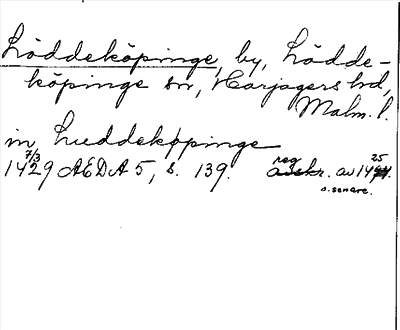 Löddeköpinge, by, Lödde-
köpinge sn, Harjagers hd,
Malm. l.
in Luddekøpinge
7/3 reg 25
1429 AEDA 5, s. 139. avskr. av 14
o. senare.